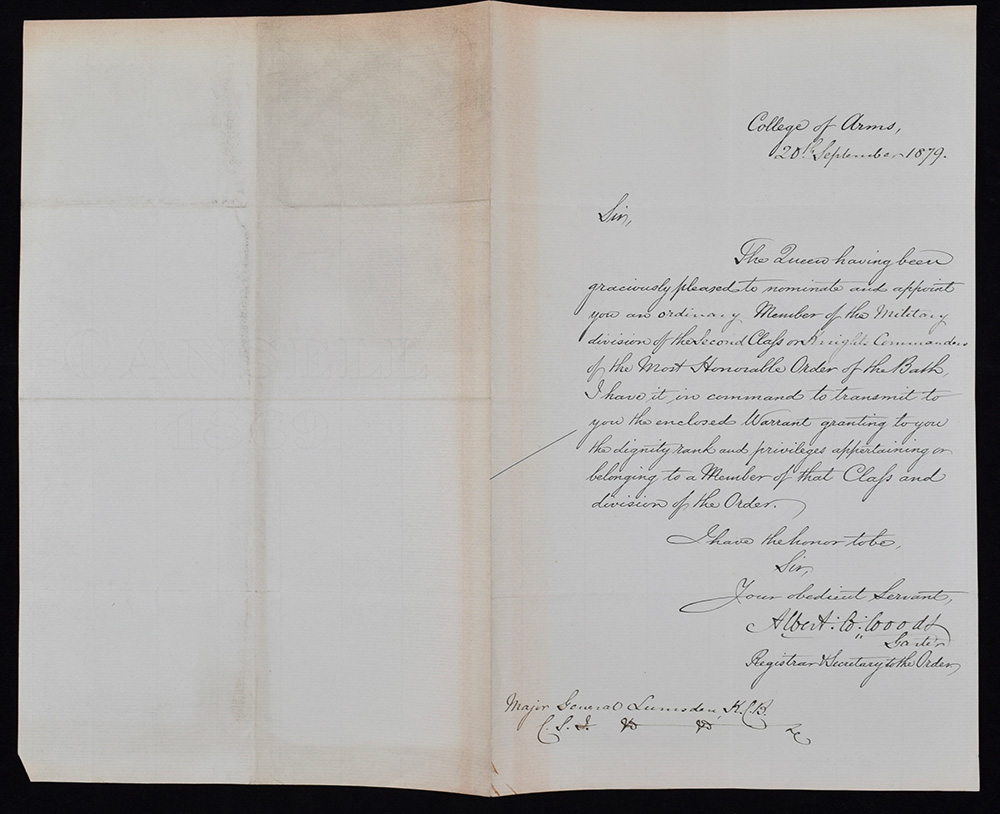 College of Arms,
20th September 1879.
Sir,
The Queen having been
graciously pleased to nominate and appoint
you an ordinary Member of the Military
division of the Second Class or Knights Commanders
of the Most Honorable Order of the Bath,
I have it in command to transmit to
you the enclosed Warrant granting to you
the dignity rank and privileges appertaining or
belonging to a Member of that Class and
division of the Order.
I have the honor to be,
Sir,
Your obedient Servant,
Albert W. Woods
Garter
Registrar & Secretary to the Order,
Major General Lumsden, K.C.B.
C.S.I. &c &c &c